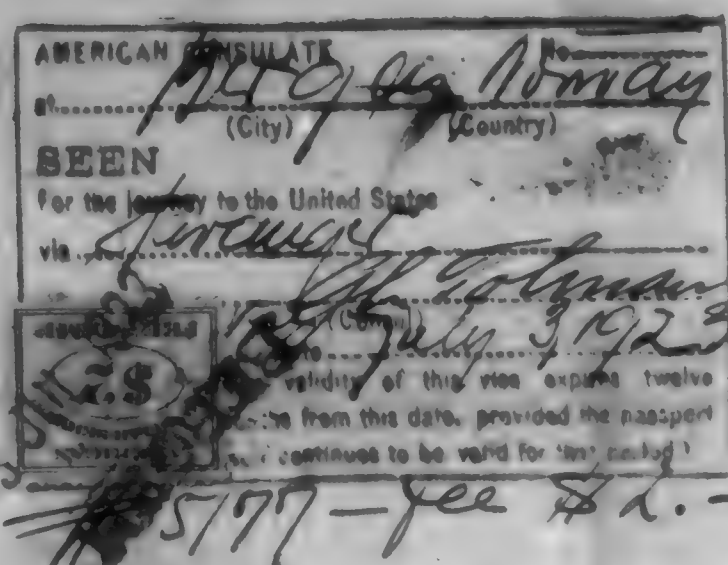 AMERICAN CONSULATE No.
at Norway
(City) (Country)
SEEN
For the journey to the United States
via
July 3 1923
validity of this visa expires twelve
months from this date, provided the passport
continues to be valid for this period)
2$
5177 — fee $2.-